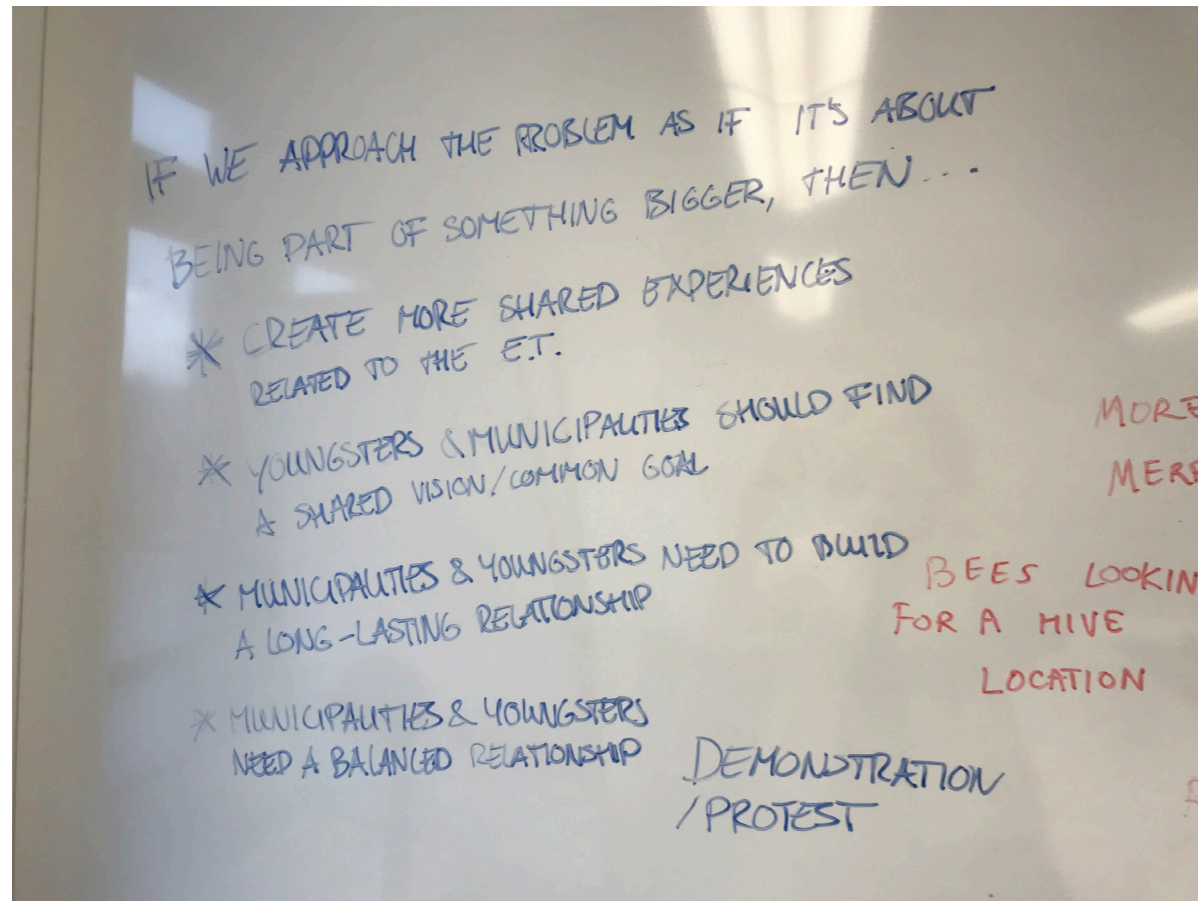 IF WE APPROACH THE PROBLEM AS IF IT'S ABOUT
BEING PART OF SOMETHING BIGGER, THEN...
* CREATE MORE SHARED EXPERIENCES
RELATED TO THE E.T.
* YOUNGSTERS & MUNICIPALITIES SHOULD FIND
A SHARED VISION/COMMON GOAL
* MUNICIPALITIES & YOUNGSTERS NEED TO BUILD
A LONG-LASTING RELATIONSHIP
* MUNICIPALITIES & YOUNGSTERS
NEED A BALANCED RELATIONSHIP
DEMONSTRATION
/PROTEST
MORE
MERE
BEES LOOKIN
FOR A HIVE
LOCATION